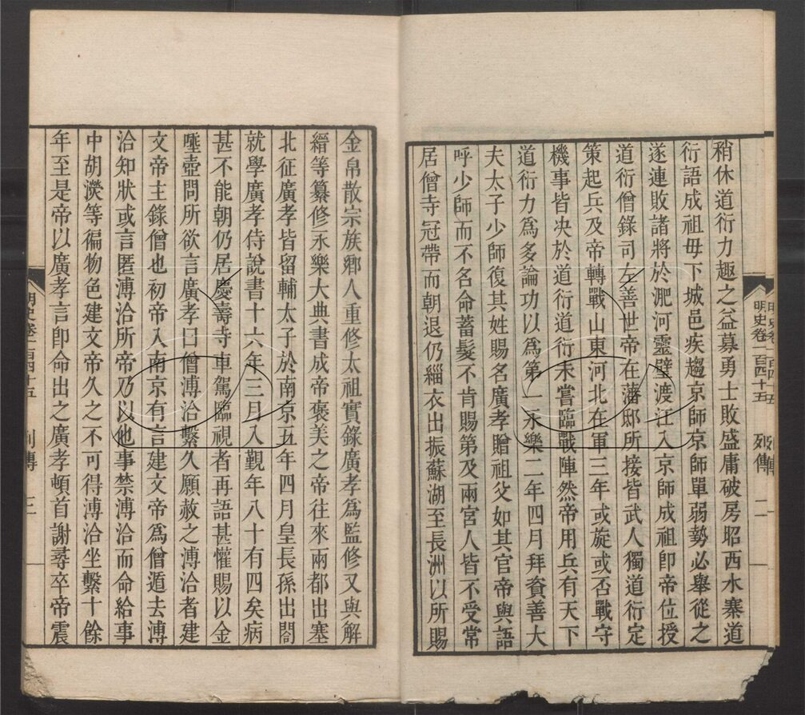 稍休道衍力趣之益募勇士敗盛庸破房昭西水寨道
衍語成祖毋下城邑疾趨京師京師單弱勢必舉從之
遂連敗諸將於淝河靈璧渡江入京師成祖即帝位授
道衍僧錄司左善世帝在藩邸所接皆武人獨道衍定
策起兵及帝轉戰山東河北在軍三年或旋或否戰守
機事皆決於道衍道衍未嘗臨戰陣然帝用兵有天下
道衍力為多論功以為第一永樂二年四月拜資善大
夫太子少師復其姓賜名廣孝贈祖父如其官帝與語
呼少師而不名命蓄髮不肯賜第及兩宮人皆不受常
居僧寺冠帶而朝退仍緇衣出振蘇湖至長洲以所賜
明史卷一百四十五 列傳 二
金帛散宗族鄉人重修太祖實錄廣孝為監修又與解
縉等纂修永樂大典書成帝褒美之帝往來兩都出塞
北征廣孝皆留輔太子於南京五年四月皇長孫出閤
就學廣孝侍說書十六年三月入覲年八十有四矣病
甚不能朝仍居慶壽寺車駕臨視者再語甚懽賜以金
唾壺問所欲言廣孝曰僧溥洽繫久願赦之溥洽者建
文帝主錄僧也初帝入南京有言建文帝為僧遁去溥
洽知狀或言匿溥洽所帝乃以他事禁溥洽而命給事
中胡濙等徧物色建文帝久之不可得溥洽坐繫十餘
年至是帝以廣孝言即命出之廣孝頓首謝尋卒帝震
明史卷一百四十五 列傳 三